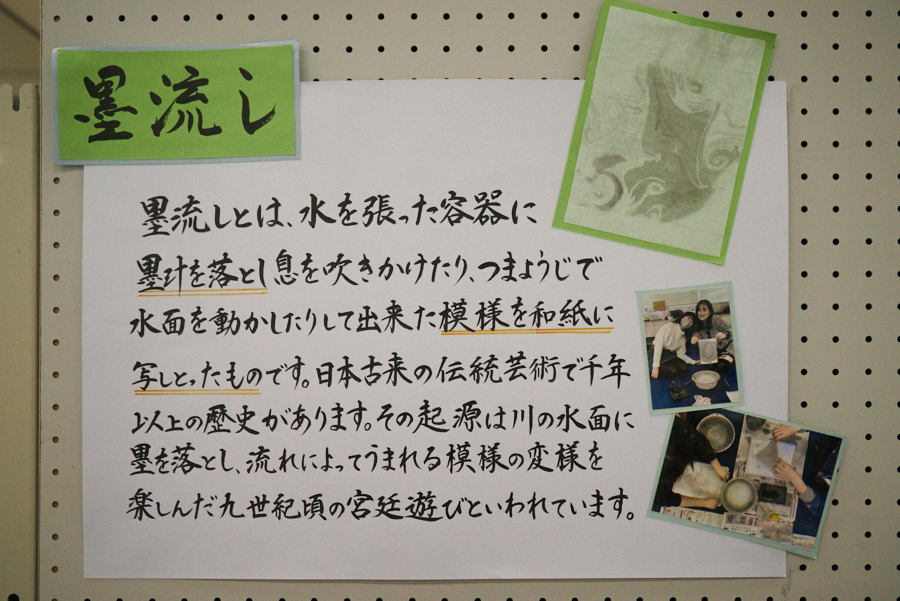 墨流し
墨流しとは、水を張った容器に
墨汁を落とし息を吹きかけたり、つまようじで
水面を動かしたりして出来た模様を和紙に
写しとったものです。日本古来の伝統芸術で千年
以上の歴史があります。その起源は川の水面に
墨を落とし、流れによってうまれる模様の変様を
楽しんだ九世紀頃の宮廷遊びといわれています。